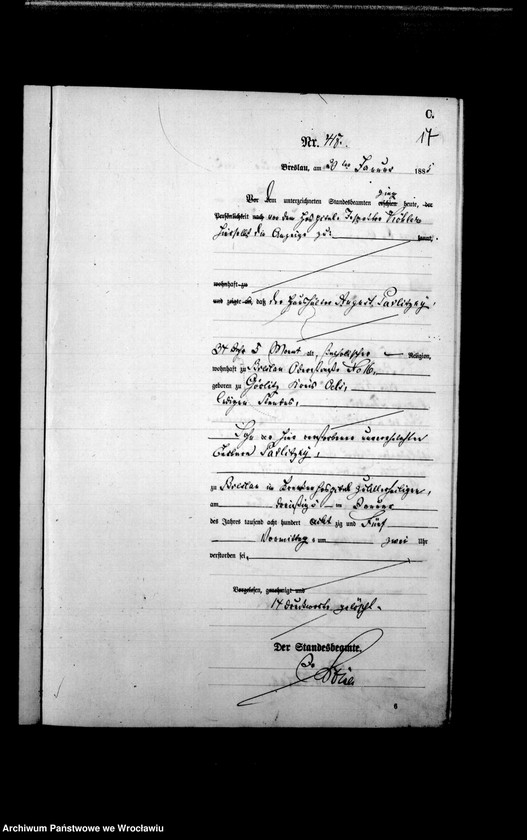 C.
17
Nr. 415.
Breslau, am 30 ten Januar 1885
Vor dem unterzeichneten Standesbeamten erschien heute, der
ging
Persönlichkeit nach von dem Hospital-Inspektor
hierselbst die Anzeige ein: kannt,
wohnhaft zu
und zeigte an, daß der Haushälter August Pavlitzky,
34 Jahr 5 Monat alt, katholischer Religion,
wohnhaft zu Breslau Oderstraße No 16,
geboren zu Görlitz Kreis Oels,
ledigen Standes,
Sohn der hier verstorbenen unverehelichten
Pavlitzky,
zu Breslau im Krankenhospital zu Allerheiligen,
am dreißigsten Januar
des Jahres tausend acht hundert achtzig und fünf
Vormittags um zwei Uhr
verstorben sei.
Vorgelesen, genehmigt und
17 Druckworte gelöscht.
Der Standesbeamte.
6
Archiwum Państwowe we Wrocławiu